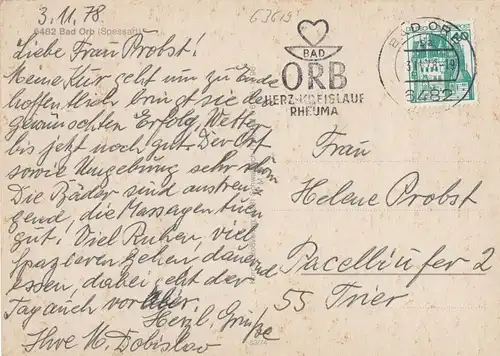 3.11.78.
63619
6482 Bad Orb (Spessart)
Liebe Frau Probst!
Meine Kur geht um zu Ende
hoffentlich bringt sie den
gewünschten Erfolg, Wetter
bis jetzt noch gut. Der Ort
sowie Umgebung sehr schön
Die Bäder sind anstren-
gend, die Massagen tuen
gut! Viel Ruhen, viel
spazieren gehen dauernd
essen, dabei geht der
Tag auch vorüber.
Herzl. Grüße
Ihre M. Dobislav
BAD
ORB
HERZ-KREISLAUF
RHEUMA
BAD ORB
6482
Frau
Helene Probst
Pacelliufer 2
55 Trier